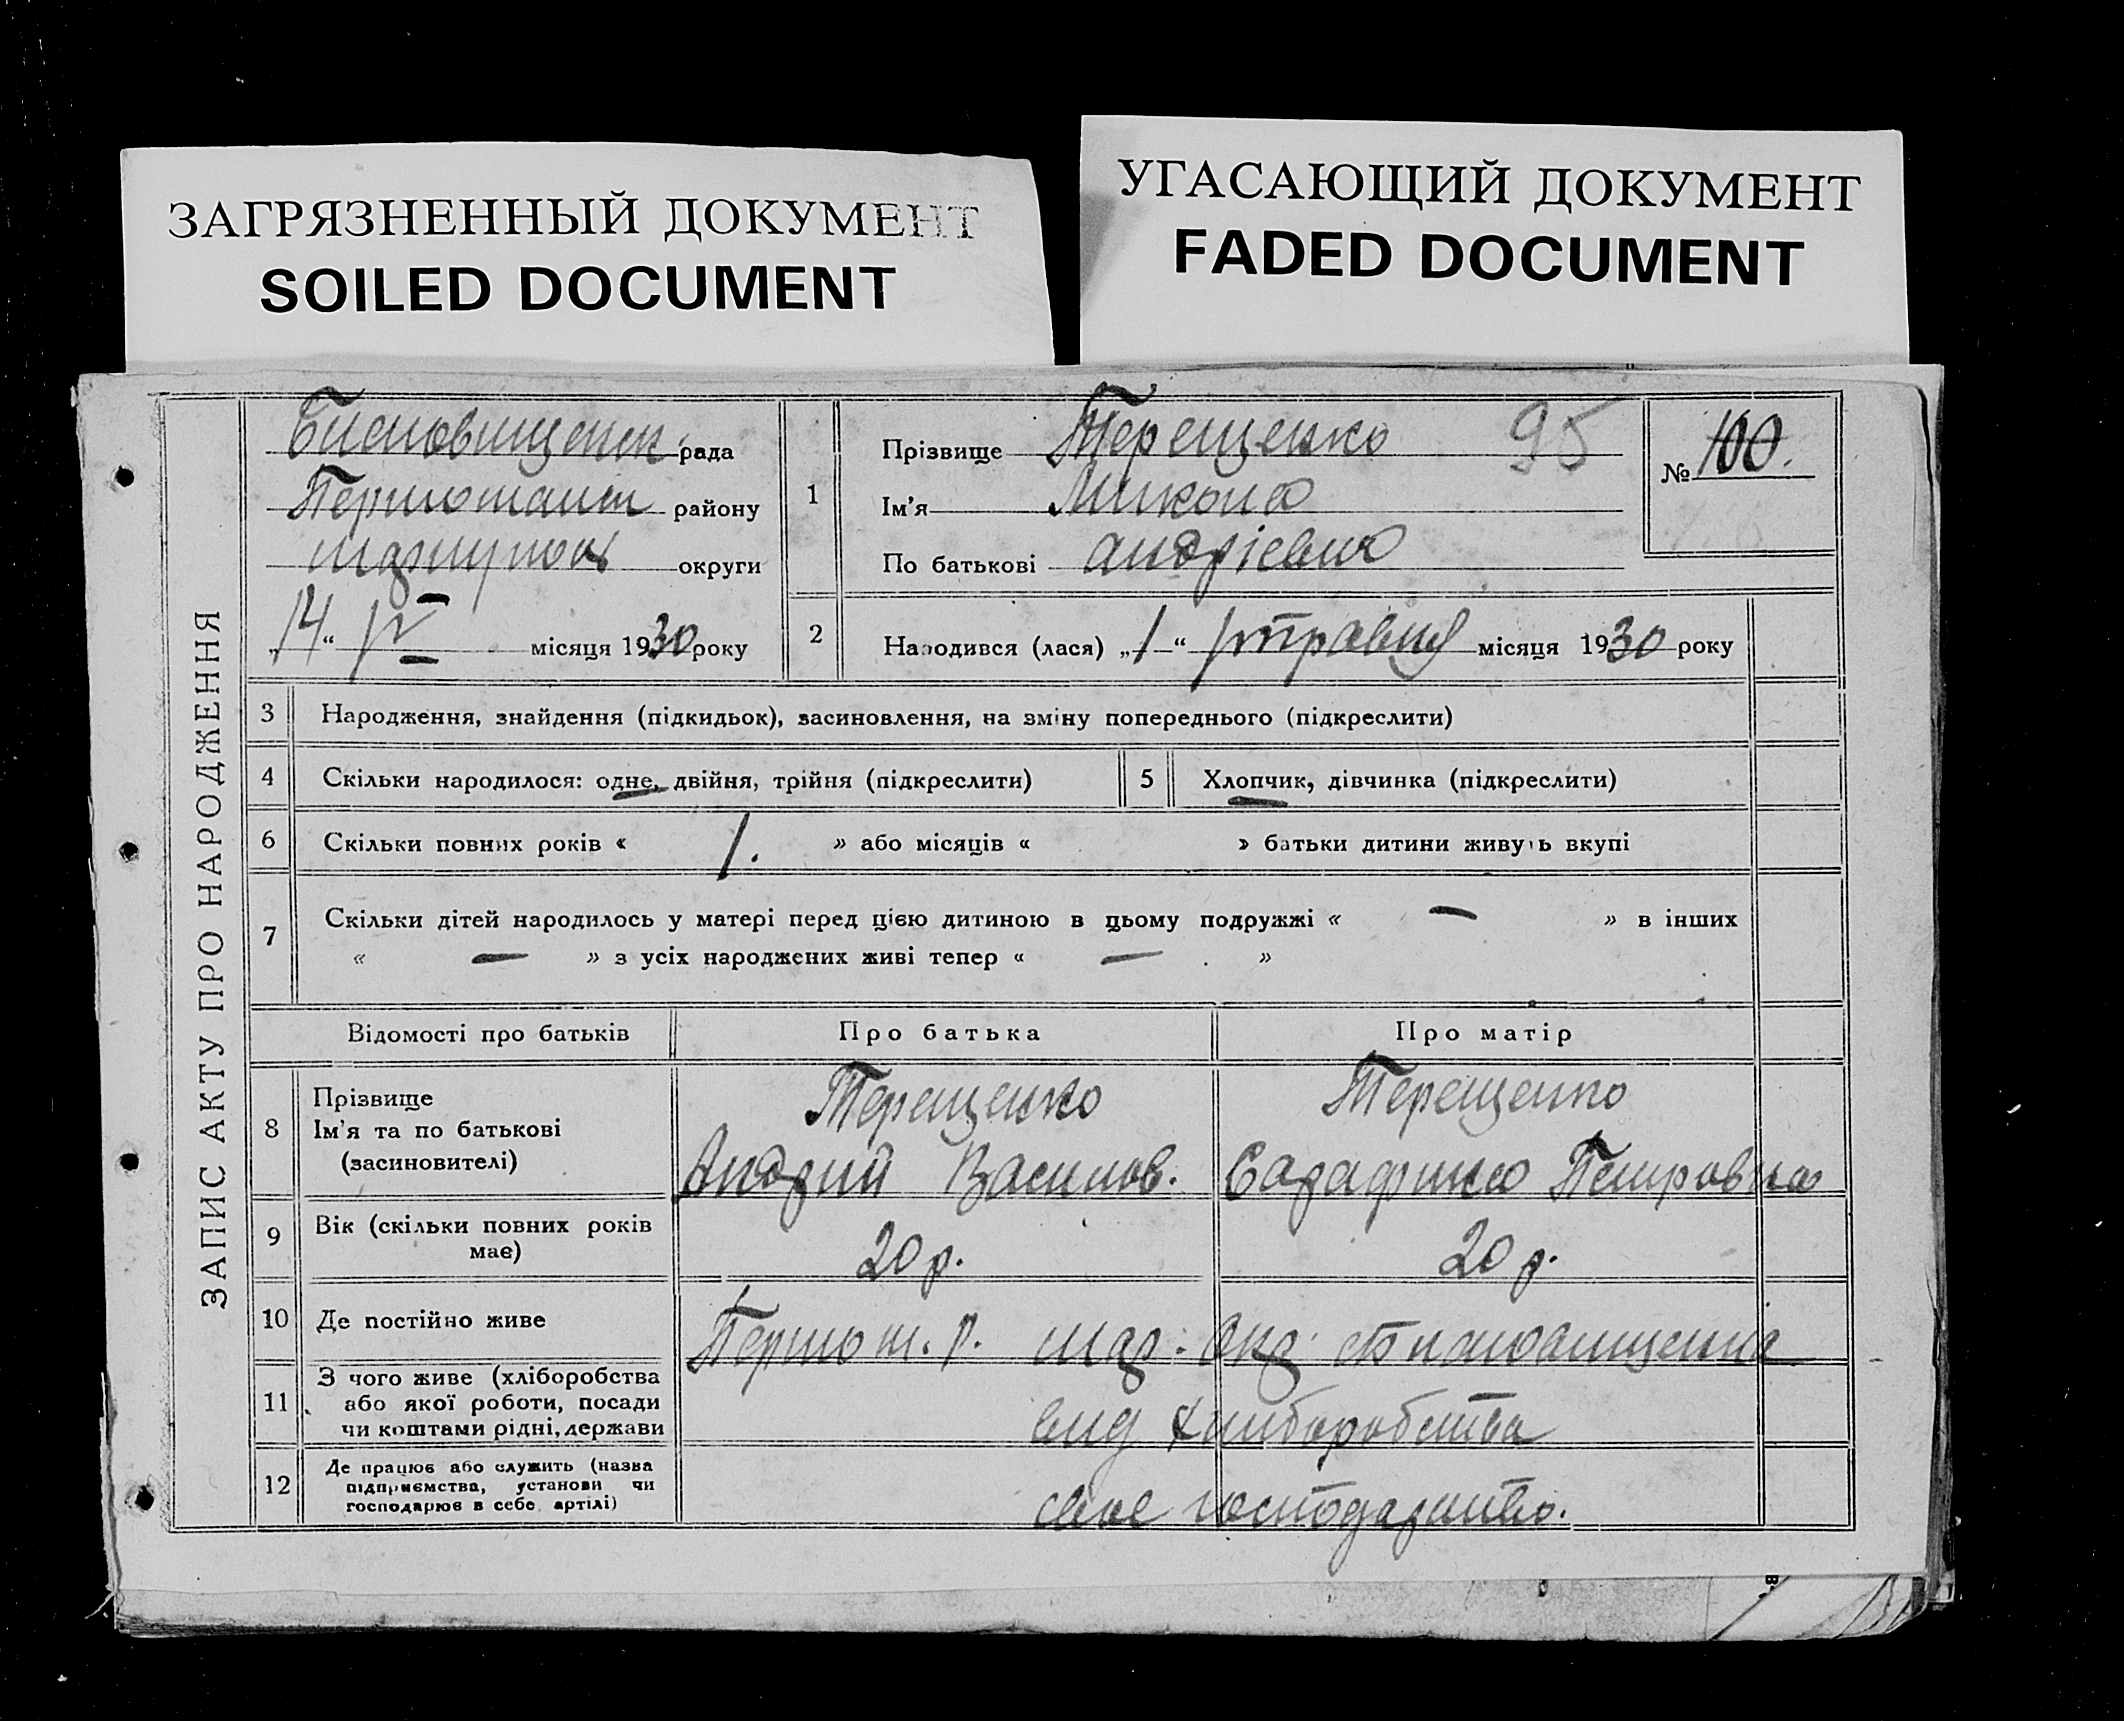 ЗАГРЯЗНЕННЫЙ ДОКУМЕНТ
SOILED DOCUMENT
УГАСАЮЩИЙ ДОКУМЕНТ
FADED DOCUMENT
ЗАПИС АКТУ ПРО НАРОДЖЕННЯ
рада
району
округи
„14“ IV місяця 1930 року
1
Прізвище Терещенко 95
Ім'я Микола
По батькові Андрієвич
№ 100.
2 Народився (лася) „1“ травня місяця 1930 року
3 Народження, знайдення (підкидьок), засиновлення, на зміну попереднього (підкреслити)
4 Скільки народилося: одне, двійня, трійня (підкреслити) 5 Хлопчик, дівчинка (підкреслити)
6 Скільки повних років « 1. » або місяців « » батьки дитини живуть вкупі
7 Скільки дітей народилось у матері перед цією дитиною в цьому подружжі « — » в інших
« — » з усіх народжених живі тепер « — »
Відомості про батьків Про батька Про матір
8 Прізвище
Ім'я та по батькові
(засиновителі)
Терещенко
Андрий Васильов.
Терещенко
Сарафима Петровна
9 Вік (скільки повних років
має)
20 р. 20 р.
10 Де постійно живе
Першот. р. мар. окр.
11 З чого живе (хліборобства
або якої роботи, посади
чи коштами рідні, держави
вид хлиборобства
12 Де працює або служить (назва
підприємства, установи чи
господарює в себе, артілі)
свое господарство.